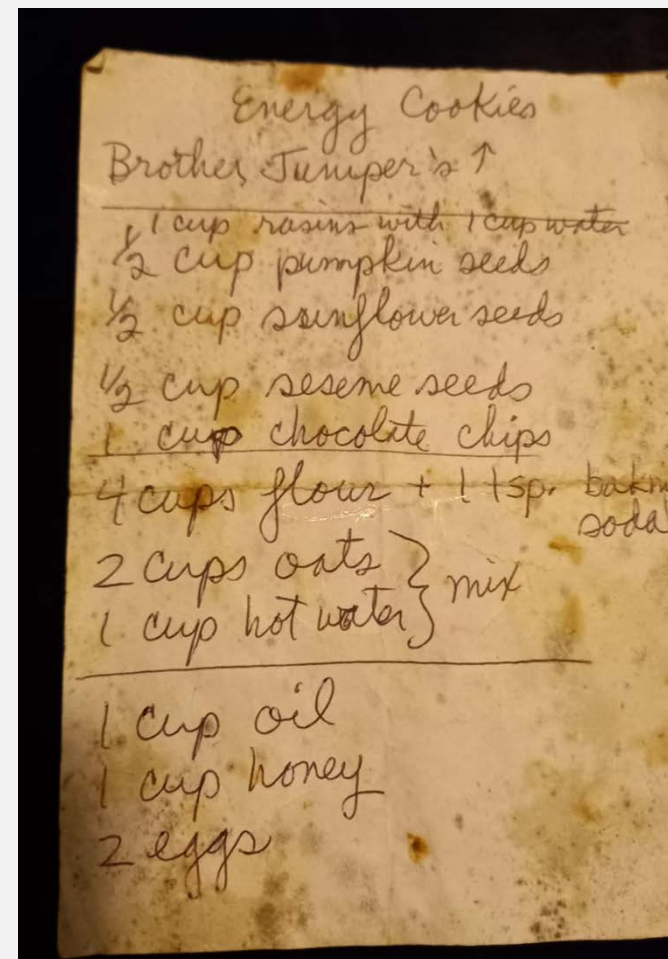 Energy Cookies
Brother Juniper's ↑
1 cup rasins with 1 cup water
1/2 cup pumpkin seeds
1/2 cup sunflower seeds
1/2 cup seseme seeds
1 cup chocolate chips
4 cups flour + 1 tsp. bakin
soda
2 cups oats } mix
1 cup hot water }
1 cup oil
1 cup honey
2 eggs